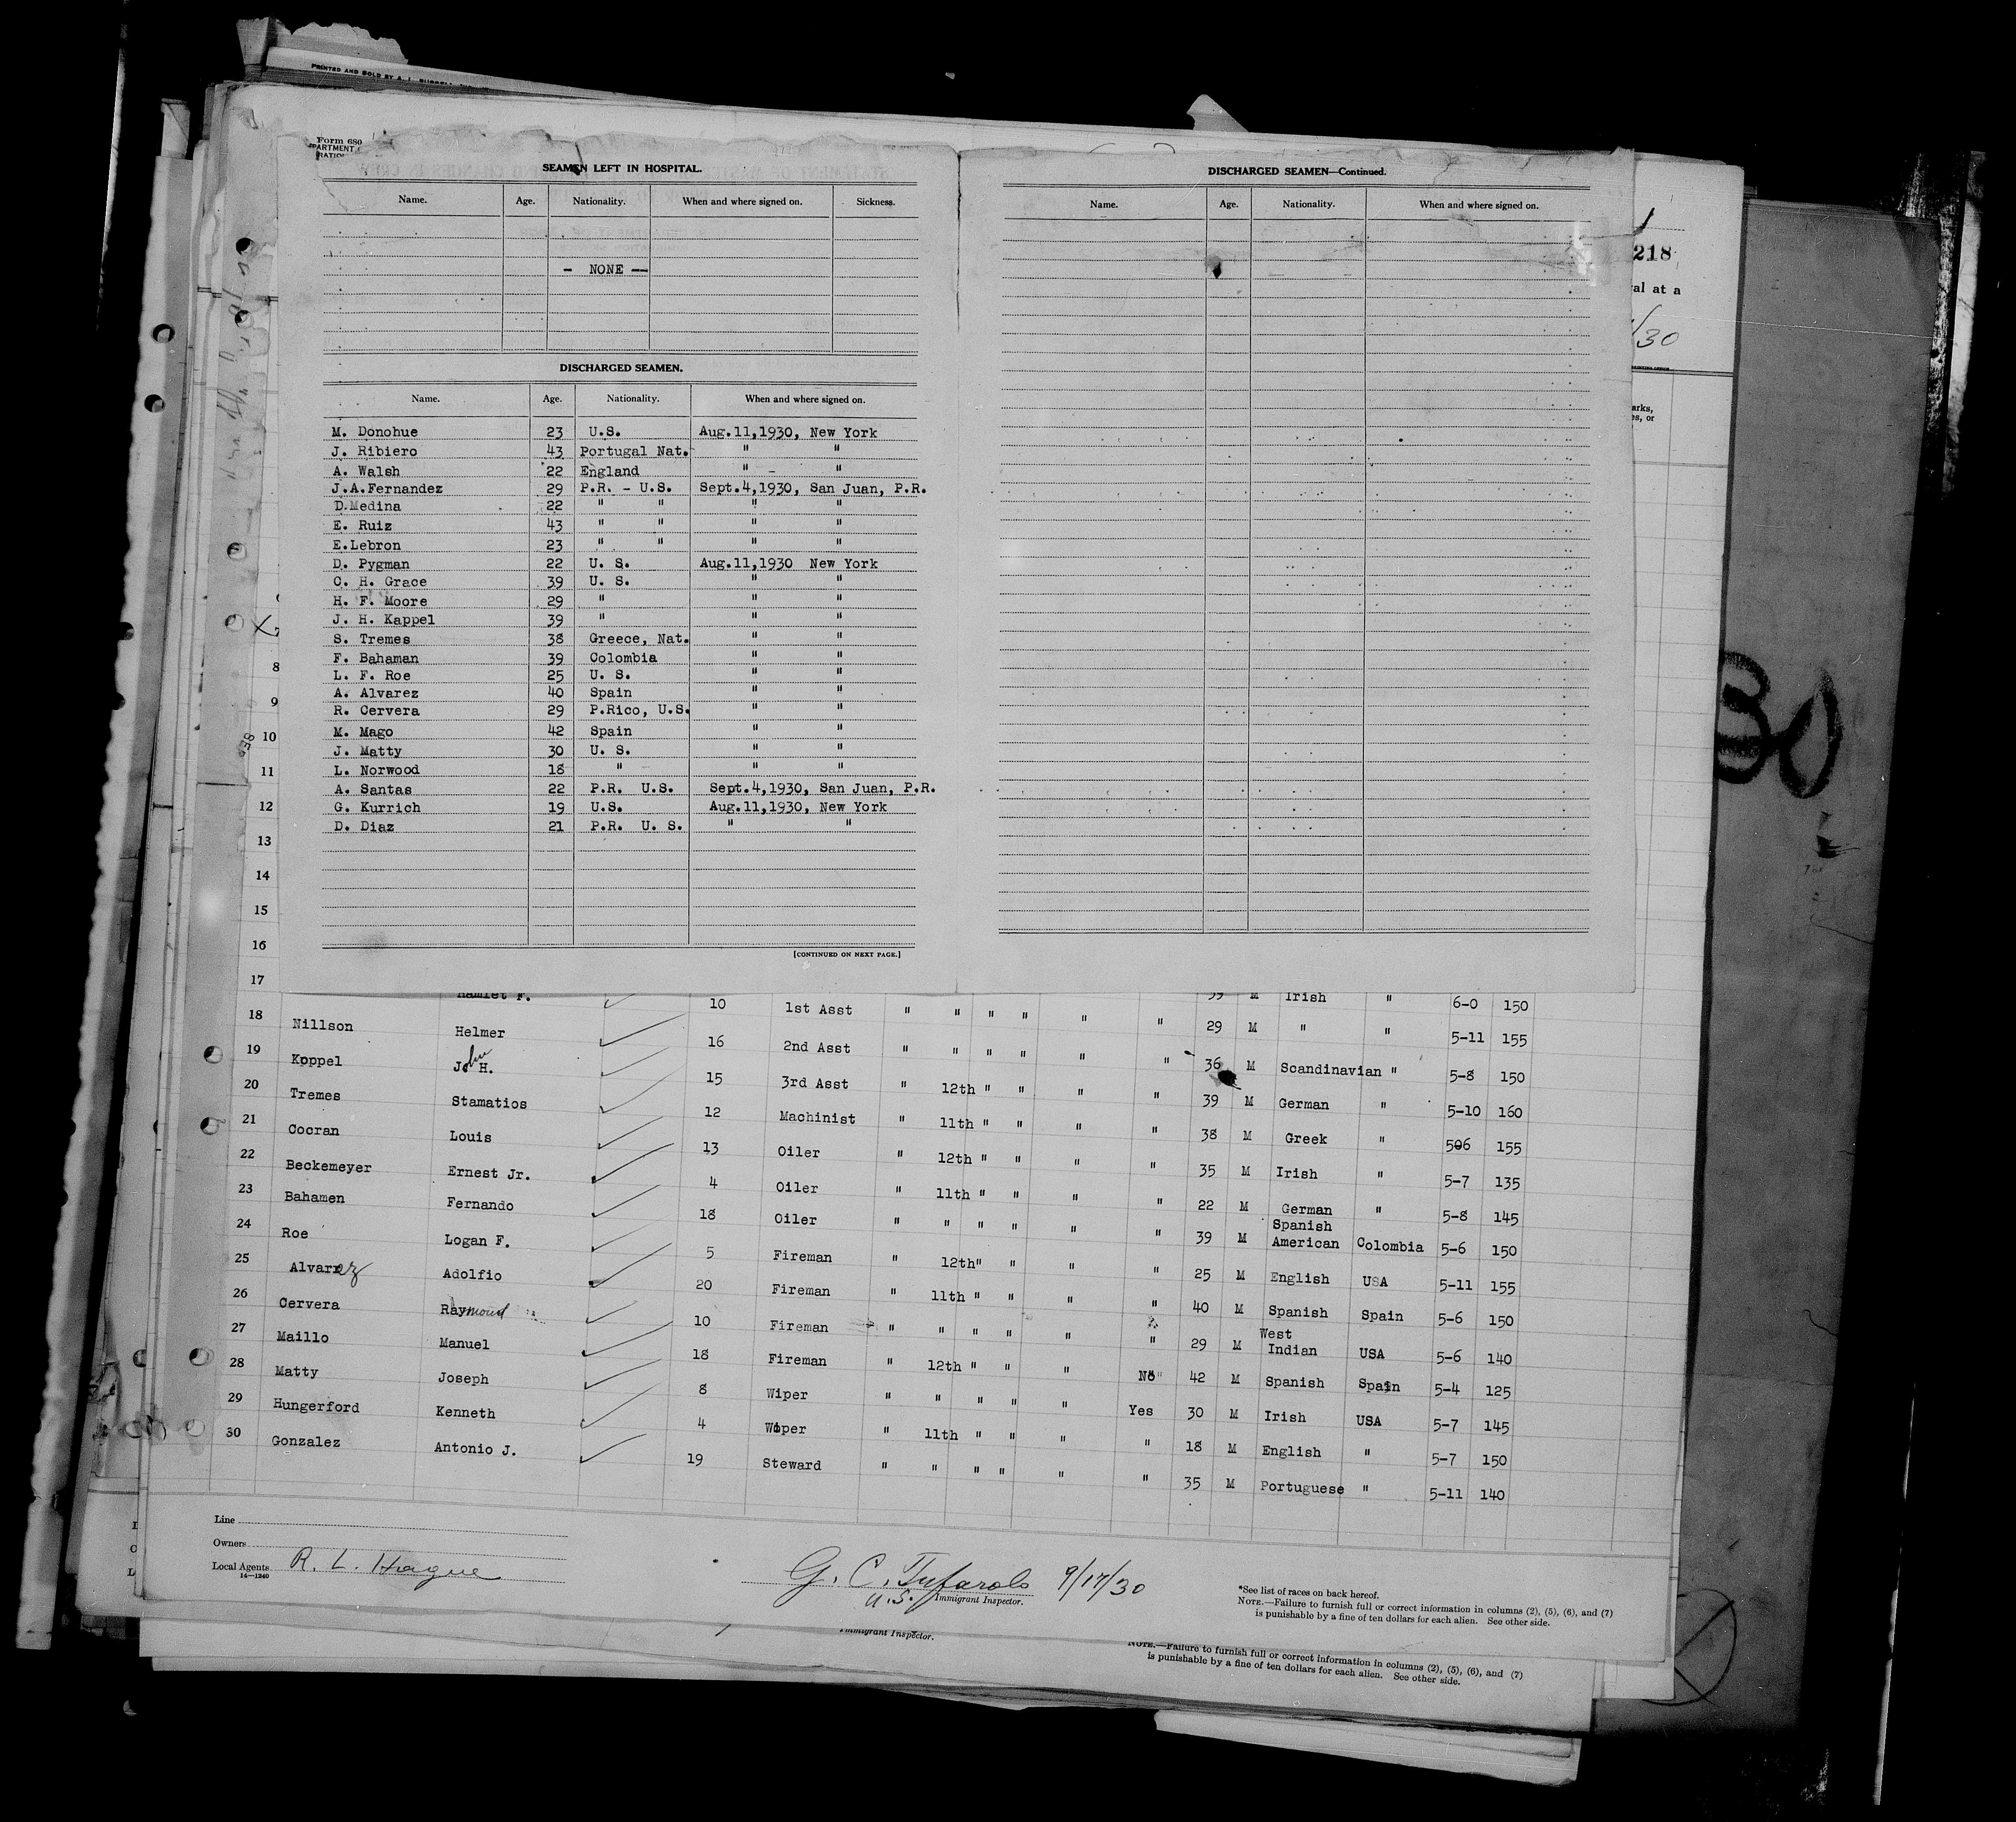 PRINTED AND SOLD BY A. L.
Form 680
SEAMEN LEFT IN HOSPITAL.
Name. Age. Nationality. When and where signed on. Sickness.
- NONE --
DISCHARGED SEAMEN.
Name. Age. Nationality. When and where signed on.
M. Donohue 23 U.S. Aug.11,1930, New York
J. Ribiero 43 Portugal Nat. " "
A. Walsh 22 England " - "
J.A.Fernandez 29 P.R. - U.S. Sept.4,1930, San Juan, P.R.
D.Medina 22 " " " "
E. Ruiz 43 " " " "
E.Lebron 23 " " " "
D. Pygman 22 U. S. Aug.11,1930 New York
C. H. Grace 39 U. S. " "
H. F. Moore 29 " " "
J. H. Kappel 39 " " "
S. Tremes 38 Greece, Nat. " "
F. Bahaman 39 Colombia " "
L. F. Roe 25 U. S. " "
A. Alvarez 40 Spain " "
R. Cervera 29 P.Rico, U.S. " "
M. Mago 42 Spain " "
J. Matty 30 U. S. " "
L. Norwood 18 " " "
A. Santas 22 P.R. U.S. Sept.4,1930, San Juan, P.R.
G. Kurrich 19 U.S. Aug.11,1930, New York
D. Diaz 21 P.R. U. S. " "
[CONTINUED ON NEXT PAGE.]
DISCHARGED SEAMEN—Continued.
Name. Age. Nationality. When and where signed on.
218
val at a
/30
arks,
es, or
30
8
9
10
11
12
13
14
15
16
17
Hamlet F. 10 1st Asst " " " " " " 39 M Irish " 6-0 150
18 Nillson Helmer 16 2nd Asst " " " " " " 29 M " " 5-11 155
19 Koppel John H. 15 3rd Asst " 12th " " " " 36 M Scandinavian " 5-8 150
20 Tremes Stamatios 12 Machinist " 11th " " " " 39 M German " 5-10 160
21 Cocran Louis 13 Oiler " 12th " " " " 38 M Greek " 506 155
22 Beckemeyer Ernest Jr. 4 Oiler " 11th " " " " 35 M Irish " 5-7 135
23 Bahamen Fernando 18 Oiler " " " " " " 22 M German " 5-8 145
24 Roe Logan F. 5 Fireman " 12th " " " " 39 M Spanish American Colombia 5-6 150
25 Alvarez Adolfio 20 Fireman " 11th " " " " 25 M English USA 5-11 155
26 Cervera Raymond 10 Fireman " " " " " " 40 M Spanish Spain 5-6 150
27 Maillo Manuel 18 Fireman " 12th " " " " 29 M West Indian USA 5-6 140
28 Matty Joseph 8 Wiper " " " " " No 42 M Spanish Spain 5-4 125
29 Hungerford Kenneth 4 Wiper " 11th " " " Yes 30 M Irish USA 5-7 145
30 Gonzalez Antonio J. 19 Steward " " " " " " 18 M English " 5-7 150
" 35 M Portuguese " 5-11 140
Line
Owners
Local Agents R. L. Hague
14—1240
G. C. Tufarolo 9/17/30
U.S. Immigrant Inspector.
*See list of races on back hereof.
NOTE.—Failure to furnish full or correct information in columns (2), (5), (6), and (7)
is punishable by a fine of ten dollars for each alien. See other side.
Immigrant Inspector.
NOTE.—Failure to furnish full or correct information in columns (2), (5), (6), and (7)
is punishable by a fine of ten dollars for each alien. See other side.